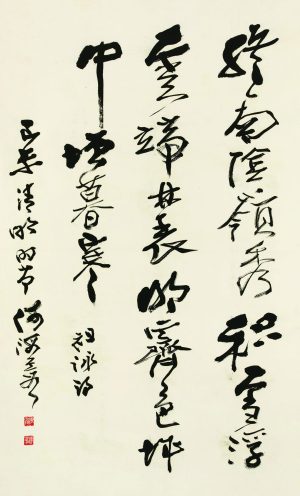 終南陰嶺秀積雪浮
雲端林表明霽色城
中增暮寒 祖詠詩
清明时节